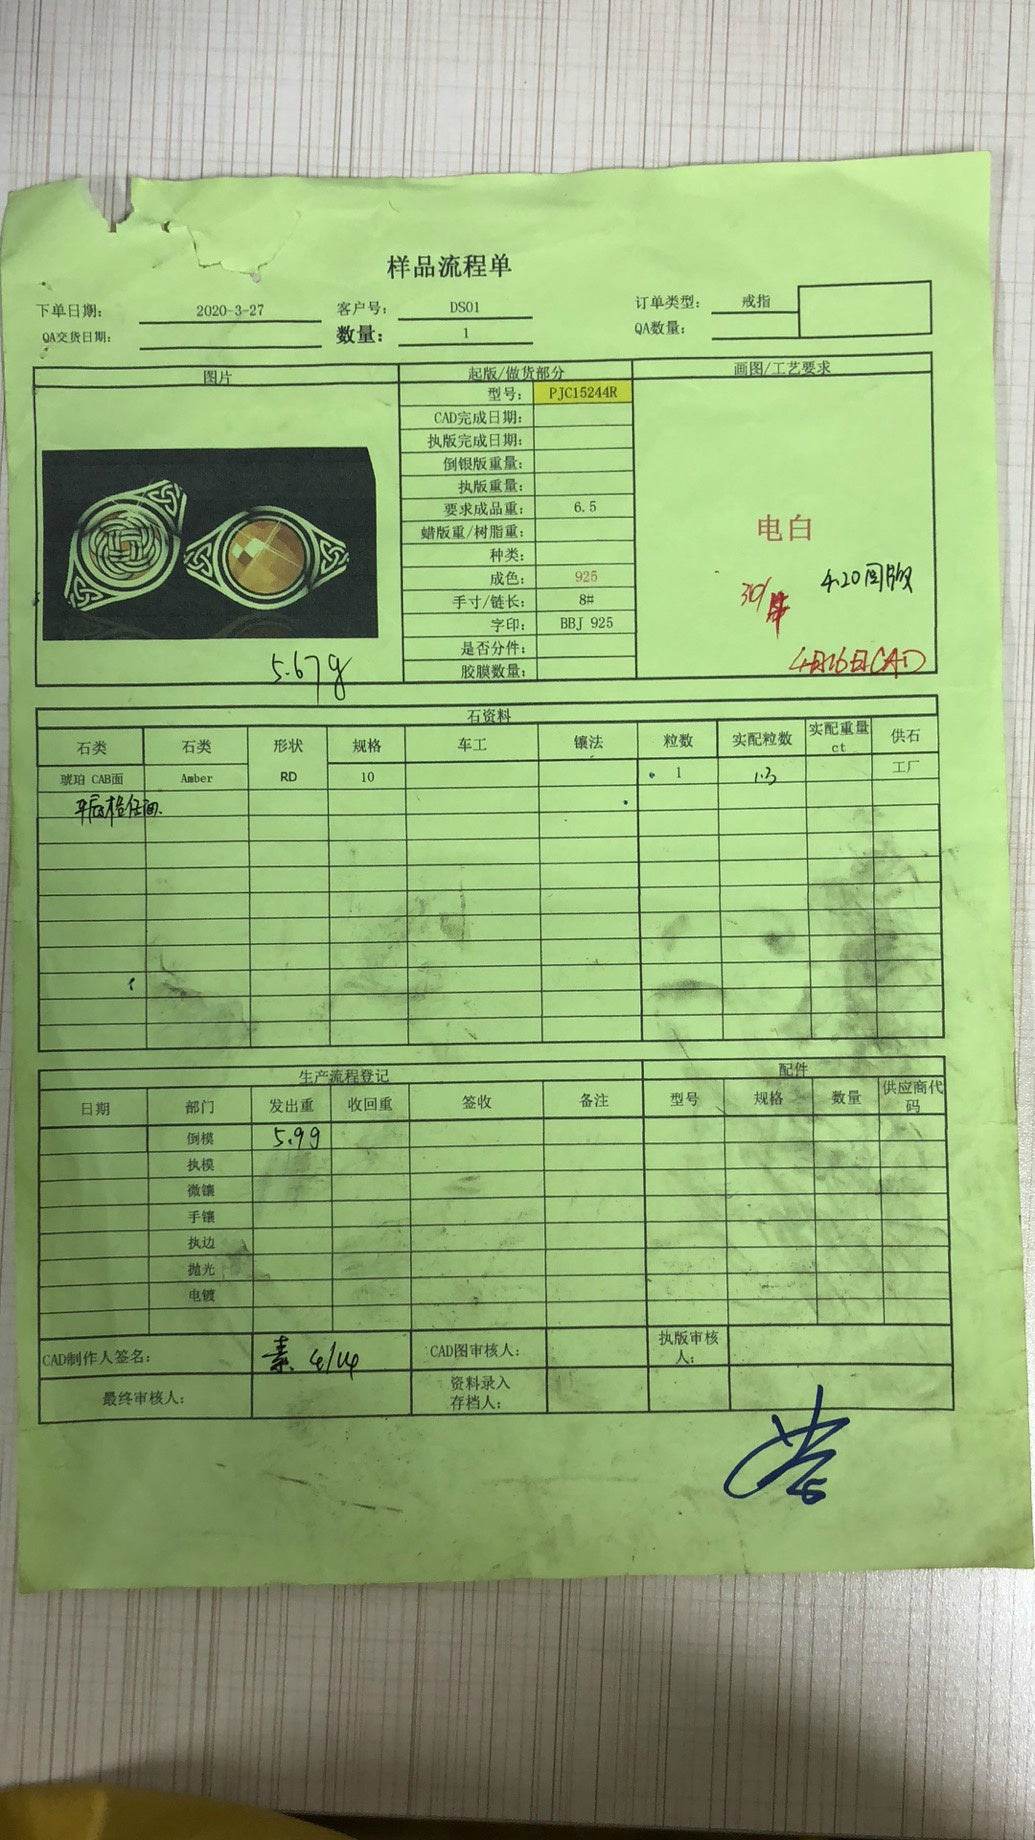 样品流程单
下单日期： 2020-3-27 客户号： DS01 订单类型： 戒指
QA交货日期： 数量： 1 QA数量：
图片 起版/做货部分 画图/工艺要求
型号： PJC15244R
CAD完成日期：
执版完成日期：
倒银版重量：
执版重量：
要求成品重： 6.5
蜡版重/树脂重：
种类：
成色： 925
手寸/链长： 8#
字印： BBJ 925
是否分件：
胶膜数量：
电白
4.20回版
4月16日CAD
5.67g
石资料
石类 石类 形状 规格 车工 镶法 粒数 实配粒数 实配重量ct 供石
琥珀 CAB面 Amber RD 10 1 1.3 工厂
生产流程登记 配件
日期 部门 发出重 收回重 签收 备注 型号 规格 数量 供应商代码
倒模 5.99
执模
微镶
手镶
执边
抛光
电镀
CAD制作人签名： 素 4/14 CAD图审核人： 执版审核人：
最终审核人： 资料录入存档人：